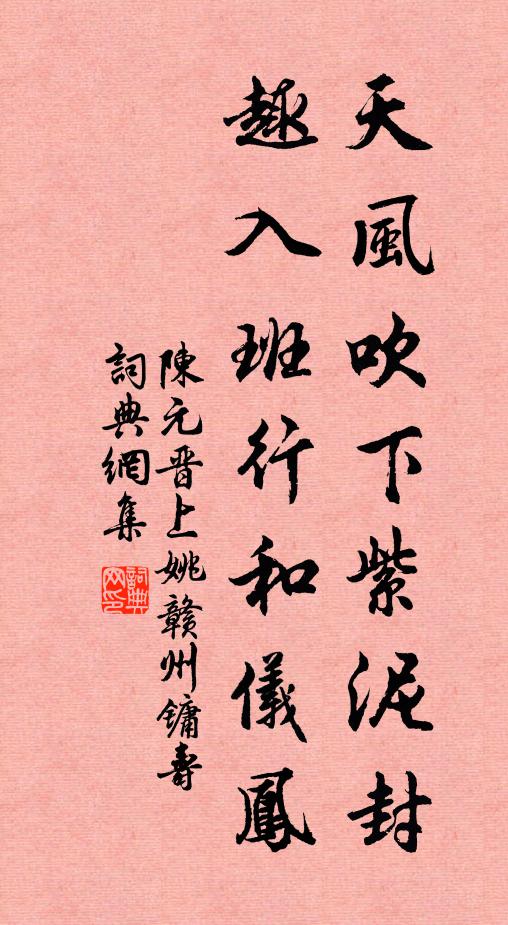 天風吹下紫泥封
趨入班行和儀鳳
陳元晋上姚贛州鏞壽
詞典網集
詞典网印